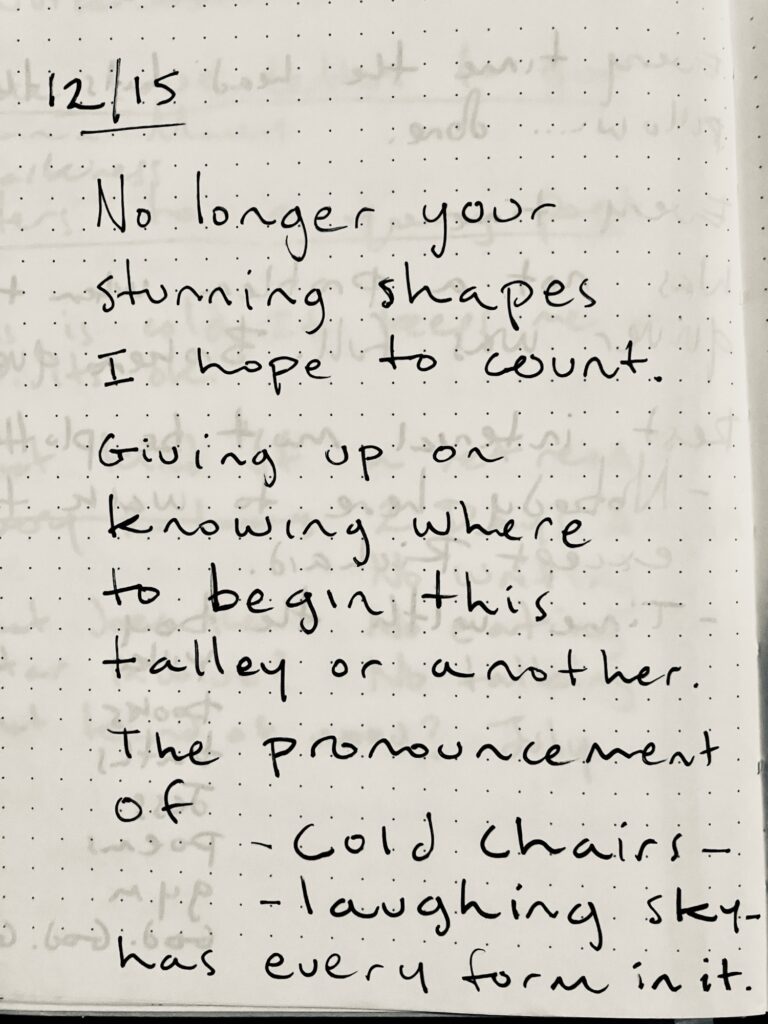 12/15
No longer your
stunning shapes
I hope to count.
Giving up on
knowing where
to begin this
talley or another.
The pronouncement
of
- Cold Chairs -
- laughing sky -
has every form in it.